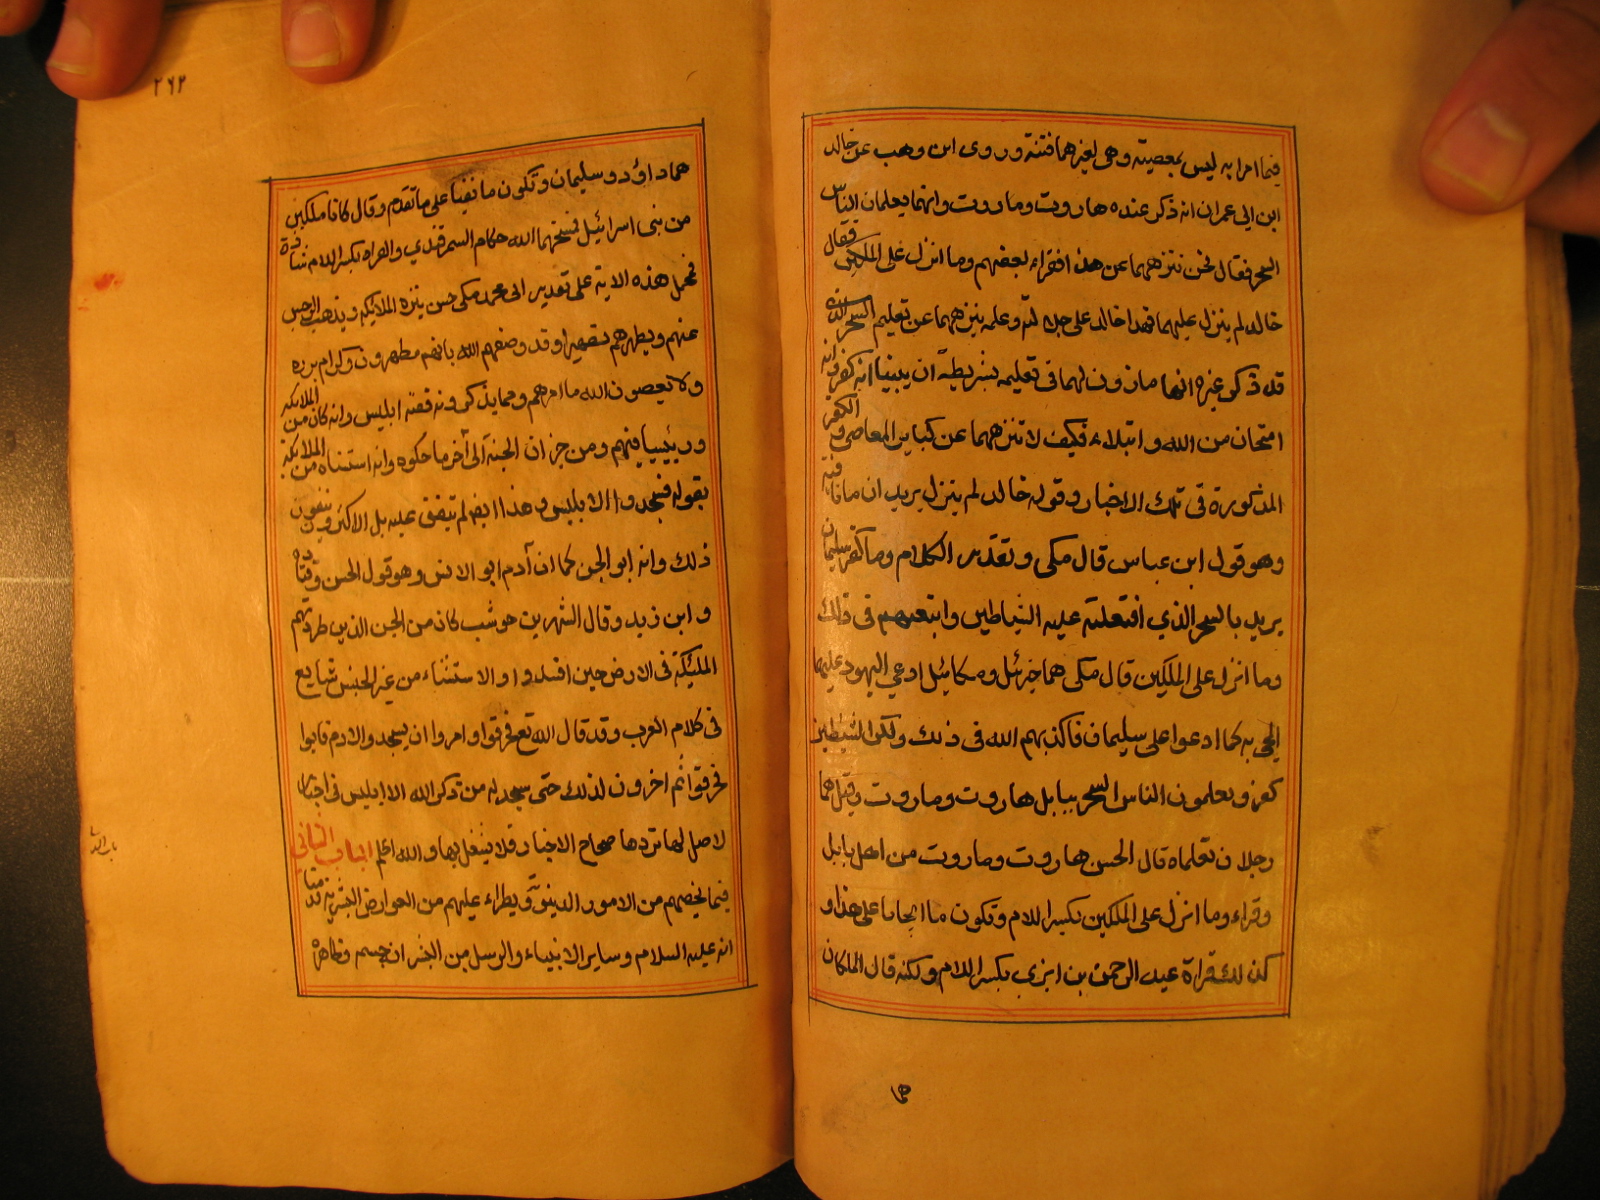 فيما امرا به ليس بمعصيته وهى لغيرهما فتنة وروى ابن وهب عن خالد
ابن ابى عمران انه ذكر عنده هاروت وماروت وانهما يعلمان الناس
السحر فقال نحن ننزههما عن هذا فقراء بعضهم وما انزل على الملكين فقال
خالد لم ينزل عليهما فهذا خالد على جلالته وعلمه ينزههما عن تعليم السحر الذى
قد ذكر غيره انهما ماذون لهما فى تعليمه بشريطة ان يبينا انه كفر وانه
امتحان من الله وابتلاء فكيف لا ننزههما عن كباير المعاصى و الكفر
المذكورة فى تلك الاخبار وقوله خالد لم ينزل يريد ان ما نافية
وهو قول ابن عباس قال مكى وتقدير الكلام وما كفر سليمان
يريد بالسحر الذي افتعلته عليه الشياطين واتبعتهم فى ذلك
وما انزل على الملكين قال مكى هما جبرئل وميكائل ادعي اليهود عليهما
المجي به كما ادعوا على سليمان فاكذبهم الله فى ذلك ولكن الشيطين
كفرو يعلمون الناس السحر ببابل هاروت وماروت وقيل هما
رجلان تعلماه قال الحسن هاروت وماروت من اهل بابل
وقراء وما انزل على الملكين بكسر اللام وتكون ما ايجابا على هذا و
كذلك قراة عبد الرحمن بن ابزى بكسر اللام ولكنه قال الملكان
هما
٢٦٢
هما داؤد وسليمان وتكون ما نفيا على ما تقدم وقال كانا ملكين
من بنى اسرائيل فمسخهما الله حكاه السمرقندي والقراه بكسر اللام شاذة
فمحمل هذه الاية على تقدير ابى محمد مكى حسن ينزه الملائكه ويذهب الرجس
عنهم ويطهرهم تطهيرا وقد وصفهم الله بانهم مطهرون وكرام برره
ولا يعصون الله ما امرهم ومما يذكرونه قصة ابليس وانه كان من الملائكه
ورئيسا فيهم ومن خزان الجنة الى آخر ما حكوه وانه استثناه من الملائكة
بقوله فسجدوا الا ابليس وهذا ايضا لم يتفق عليه بل الاكثرون ينفون
ذلك وانه ابو الجن كما ان آدم ابو الانس وهو قول الحسن وقتاده
وابن زيد وقال الشهر بن حوشب كان من الجن الذين طردتهم
الملئكة فى الارض حين افسدوا والاستثناء من غير الجنس شايع
فى كلام العرب وقد قال الله تع فحرقوا وامروا ان يسجدوا لادم فابوا
فحرقوا ثم اخرون لذلك حتى سجد له من ذكر الله الا ابليس فى اخبار
لاصل لها تردها صحاح الاخبار فلا نشتغل بها والله اعلم الباب الثاني
فيما يخصهم من الامور الدنيوية ويطراء عليهم من العوارض البشرية قدمنا
انه عليه السلام وساير الانبياء والرسل من البشر ان جسمه وظاهره